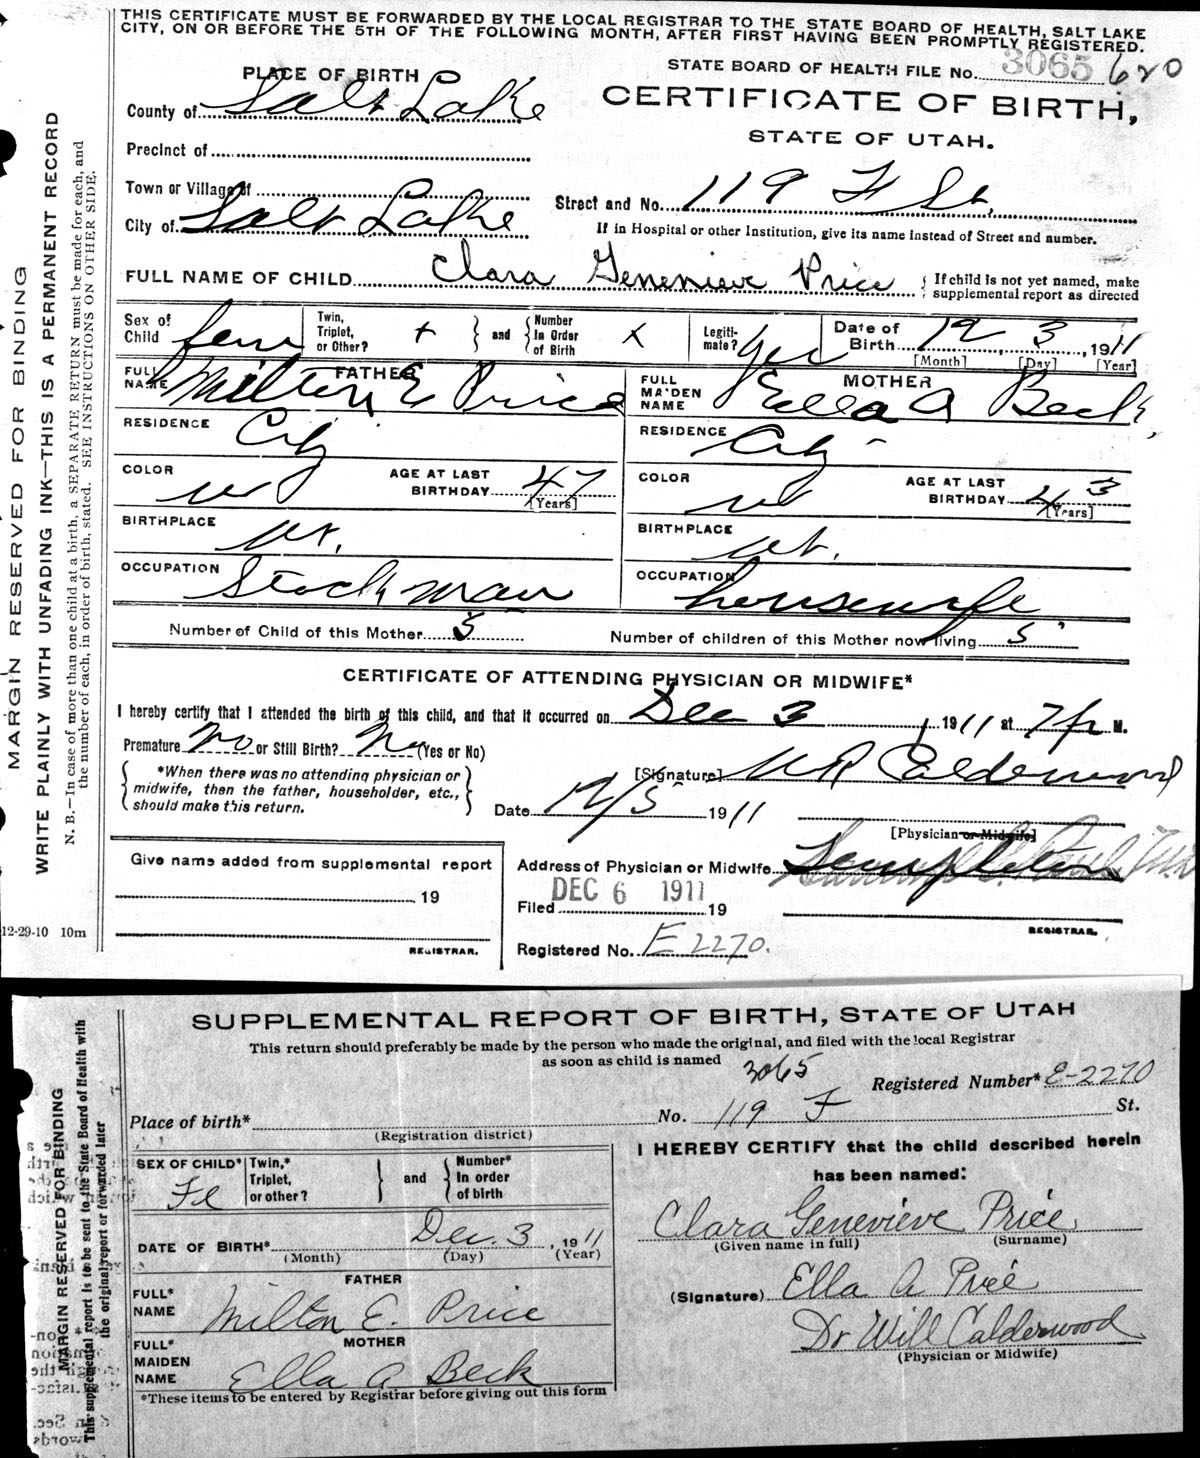 THIS CERTIFICATE MUST BE FORWARDED BY THE LOCAL REGISTRAR TO THE STATE BOARD OF HEALTH, SALT LAKE
CITY, ON OR BEFORE THE 5TH OF THE FOLLOWING MONTH, AFTER FIRST HAVING BEEN PROMPTLY REGISTERED.
STATE BOARD OF HEALTH FILE No. 3065 620
PLACE OF BIRTH
CERTIFICATE OF BIRTH,
STATE OF UTAH.
County of Salt Lake
Precinct of
Town or Village of
Street and No. 119 F St.
City of Salt Lake
If in Hospital or other Institution, give its name instead of Street and number.
FULL NAME OF CHILD Clara Genevieve Price
If child is not yet named, make
supplemental report as directed
Sex of Child fem
Twin, Triplet, or Other? +
and
Number In Order of Birth x
Legiti-mate? yes
Date of Birth 12 3, 1911
[Month] [Day] [Year]
FATHER
FULL NAME Milton E Price
MOTHER
FULL MAIDEN NAME Ella A Beck
RESIDENCE City
RESIDENCE City
COLOR w
AGE AT LAST BIRTHDAY 47 [Years]
COLOR w
AGE AT LAST BIRTHDAY 43 [Years]
BIRTHPLACE Ut.
BIRTHPLACE Ut.
OCCUPATION Stockman
OCCUPATION housewife
Number of Child of this Mother 5
Number of children of this Mother now living 5
CERTIFICATE OF ATTENDING PHYSICIAN OR MIDWIFE*
I hereby certify that I attended the birth of this child, and that it occurred on Dec 3, 1911 at 7 P. M.
Premature No or Still Birth? No (Yes or No)
*When there was no attending physician or
midwife, then the father, householder, etc.,
should make this return.
[Signature] W R Calderwood
Date 12/5 1911
[Physician or Midwife]
Give name added from supplemental report
19
REGISTRAR.
Address of Physician or Midwife Templeton
DEC 6 1911
Filed 19
REGISTRAR.
Registered No. E 2270.
12-29-10 10m
MARGIN RESERVED FOR BINDING
WRITE PLAINLY WITH UNFADING INK—THIS IS A PERMANENT RECORD
N. B.—In case of more than one child at a birth, a SEPARATE RETURN must be made for each, and
the number of each, in order of birth, stated. SEE INSTRUCTIONS ON OTHER SIDE.
SUPPLEMENTAL REPORT OF BIRTH, STATE OF UTAH
This return should preferably be made by the person who made the original, and filed with the local Registrar
as soon as child is named
3065
Registered Number* E-2270
Place of birth* No. 119 F St.
(Registration district)
SEX OF CHILD* Fe
Twin,* Triplet, or other?
and
Number* In order of birth
I HEREBY CERTIFY that the child described herein
has been named:
DATE OF BIRTH* Dec. 3, 1911
(Month) (Day) (Year)
Clara Genevieve Price
(Given name in full) (Surname)
FATHER
FULL* NAME Milton E. Price
(Signature) Ella A Price
MOTHER
FULL* MAIDEN NAME Ella A Beck
Dr Will Calderwood
(Physician or Midwife)
*These items to be entered by Registrar before giving out this form
MARGIN RESERVED FOR BINDING
This supplemental report is to be sent to the State Board of Health with
the original report or forwarded later